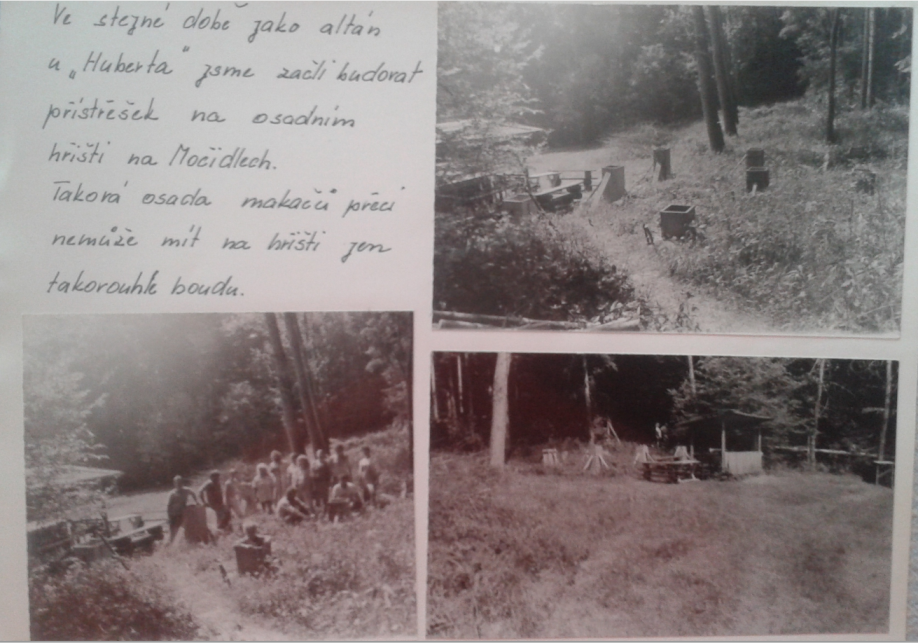 Ve stejné době jako altán
u „Huberta" jsme začli budovat
přístřešek na osadním
hřišti na Močidlech.
Taková osada makačů přeci
nemůže mít na hřišti jen
takovouhle boudu.